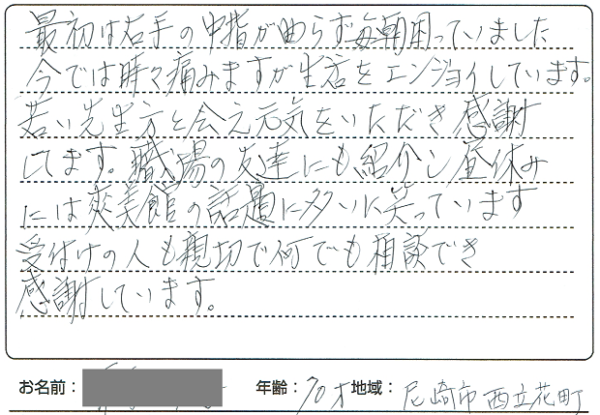 最初は右手の中指が曲らず毎朝困っていました
今では時々痛みますが生活をエンジョイしています。
若い先生方と会え元気をいただき感謝
してます。職場の友達にも紹介し昼休み
には爽美館の話題に大いに笑っています
受付けの人も親切で何でも相談でき
感謝しています。
お名前: 年齢:70才 地域: 尼崎市西立花町